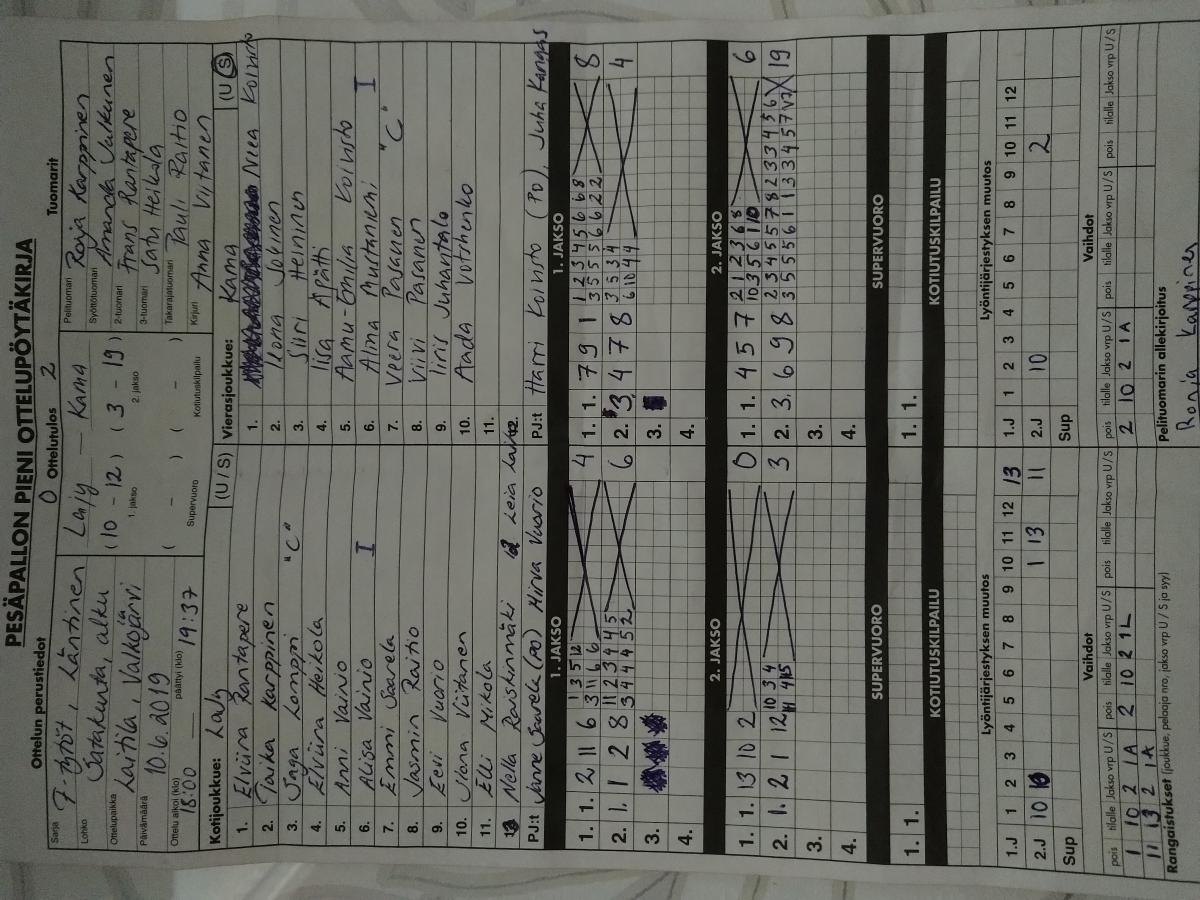 PESÄPALLON PIENI OTTELUPÖYTÄKIRJA
Ottelun perustiedot
Sarja 7-tytöt, Läntinen
Lohko Satakunta, alku
Ottelupaikka Laitila, Valkojärvi
Päivämäärä 10.6.2019
Ottelu alkoi (klo) 18:00 päättyi (klo) 19:37
0 Ottelutulos 2
LaJy — Kama
(10 - 12) (3 - 19)
1. jakso 2. jakso
( - ) ( - )
Supervuoro Kotiutuskilpailu
Tuomarit
Pelituomari Ronja Karppinen
Syöttötuomari Amanda Jalkunen
2-tuomari Frans Rantapere
3-tuomari Satu Heikola
Takarajatuomari Pauli Raitio
Kirjuri Anna Viitanen
Kotijoukkue: LaJy (U / S)
1. Elviina Rantapere
2. Taika Karppinen
3. Inga Lamppi "C"
4. Elviira Heikola
5. Anni Vainio
6. Alisa Vainio I
7. Emmi Saarela
8. Jasmin Raitio
9. Eevi Vuorio
10. Jona Viitanen
11. Elli Mikola
Nella Raiskinmäki
PJ:t Janne Saarela (PO) Mirva Vuorio
Vierasjoukkue: Kama (U / S)
1. Neea Koivisto
2. Ilona Jokinen
3. Siiri Heininen
4. Iisa Apatti
5. Aamu-Emilia Koivisto
6. Alina Mustaniemi I
7. Veera Pasanen "C"
8. Viivi Pasanen
9. Iiris Juhantalo
10. Aada Votshenko
11.
12.
PJ:t Harri Koivisto (PO), Juha Kangas
1. JAKSO
1. 1. 2 11 6 1 3 5 12 4
3 11 6 6
2. 1. 1 2 8 11 2 3 4 4 5 6
3 4 4 4 5 2
3.
4.
1. JAKSO
1. 1. 7 9 1 1 2 3 4 5 6 6 8 8
3 5 5 5 6 6 2 2
2. 3. 4 7 8 3 5 3 4 4
6 10 4 4
3.
4.
2. JAKSO
1. 1. 13 10 2 0
2. 1. 2 1 12 10 3 4 3
3.
4.
2. JAKSO
1. 1. 4 5 7 2 1 2 3 6 8 6
10 3 5 6 1 10
2. 3. 6 9 8 2 3 4 5 5 7 8 2 3 3 4 5 6 19
3 5 5 5 6 1 1 3 3 4 5 7
3.
4.
SUPERVUORO
1. 1.
SUPERVUORO
1. 1.
KOTIUTUSKILPAILU
KOTIUTUSKILPAILU
Lyöntijärjestyksen muutos
1 2 3 4 5 6 7 8 9 10 11 12 13
1.J
2.J 10 1 13 11
Sup
Lyöntijärjestyksen muutos
1 2 3 4 5 6 7 8 9 10 11 12
1.J
2.J 10 2
Sup
Vaihdot
pois tilalle Jakso vrp U / S pois tilalle Jakso vrp U / S pois tilalle Jakso vrp U / S
1 10 2 1A 2 10 2 1L
11 13 2 1A
Vaihdot
pois tilalle Jakso vrp U / S pois tilalle Jakso vrp U / S pois tilalle Jakso vrp U / S
2 10 2 1A
Rangaistukset (joukkue, pelaaja nro, jakso vrp U / S ja syy)
Pelituomarin allekirjoitus
Ronja Karppinen